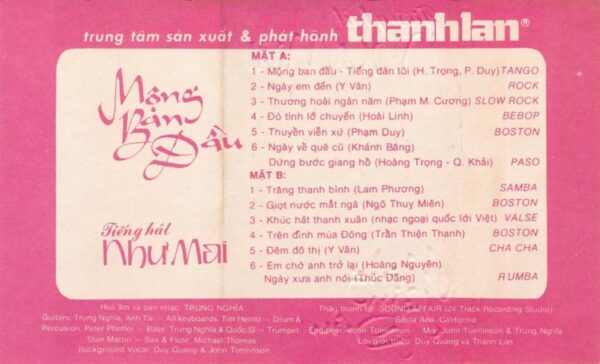 trung tâm sản xuất & phát hành thanhlan®
Mộng
Ban
Đầu
Tiếng hát
Như Mai
MẶT A:
1 - Mộng ban đầu - Tiếng đàn tôi (H. Trọng, P. Duy) TANGO
2 - Ngày em đến (Y Vân) ROCK
3 - Thương hoài ngàn năm (Phạm M. Cương) SLOW ROCK
4 - Đò tình lỡ chuyến (Hoài Linh) BEBOP
5 - Thuyền viễn xứ (Phạm Duy) BOSTON
6 - Ngày về quê cũ (Khánh Băng)
Dừng bước giang hồ (Hoàng Trọng - Q. Khải) PASO
MẶT B:
1 - Trăng thanh bình (Lam Phương) SAMBA
2 - Giọt nước mắt ngà (Ngô Thuỵ Miên) BOSTON
3 - Khúc hát thanh xuân (nhạc ngoại quốc lời Việt) VALSE
4 - Trên đỉnh mùa Đông (Trần Thiện Thanh) BOSTON
5 - Đêm đô thị (Y Vân) CHA CHA
6 - Em chớ anh trở lại (Hoàng Nguyên)
Ngày xưa anh nói (Thúc Đăng) RUMBA
Hoà âm và ban nhạc: TRUNG NGHĨA
Guitars: Trung Nghĩa, Anh Tài - All keyboards: Tim Heintz - Drum &
Percussion: Peter Pfeiffer - Bass: Trung Nghĩa & Quốc Sĩ - Trumpet:
Stan Martin - Sax & Flute: Michael Thomas
Background Vocal: Duy Quang & John Tomlinson
Thâu thanh tại: SOUND AFFAIR (24 Track Recording Studio)
Santa Ana, California
Engineer: John Tomlinson - Mix: John Tomlinson & Trung Nghĩa
Lời giới thiệu: Duy Quang và Thanh Lan